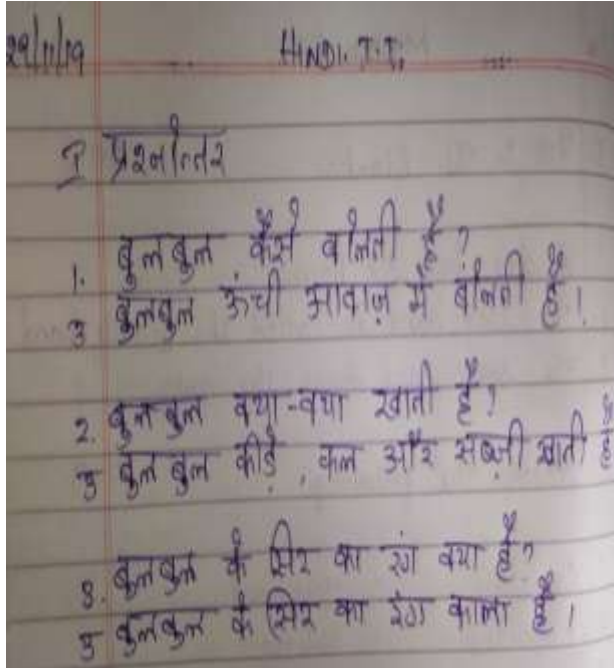 29/11/19 HINDI. T.T;
I प्रश्नोत्तर
1. बुलबुल कैसे बोलती है?
उ बुलबुल ऊंची आवाज़ में बोलती है।
2. बुलबुल क्या-क्या खाती है?
उ बुलबुल कीड़े, फल और सब्ज़ी खाती है
3. बुलबुल के सिर का रंग क्या है?
उ बुलबुल के सिर का रंग काला है।